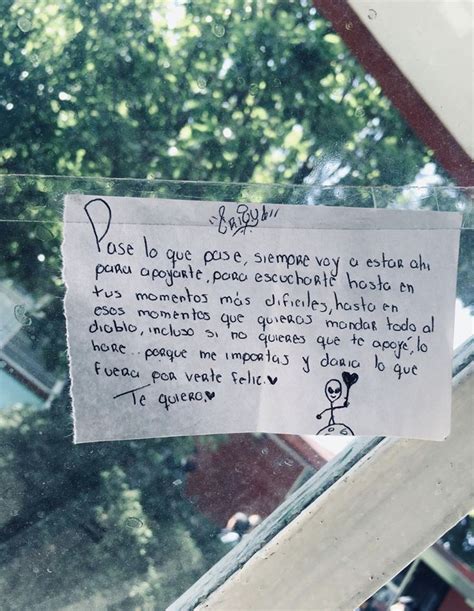 Pase lo que pase, siempre voy a estar ahi
para apoyarte, para escucharte hasta en
tus momentos más dificiles, hasta en
esos momentos que quieras mandar todo al
diablo, incluso si no quieres que te apoye, lo
hare... porque me importas y daria lo que
fuera por verte feliz.
Te quiero